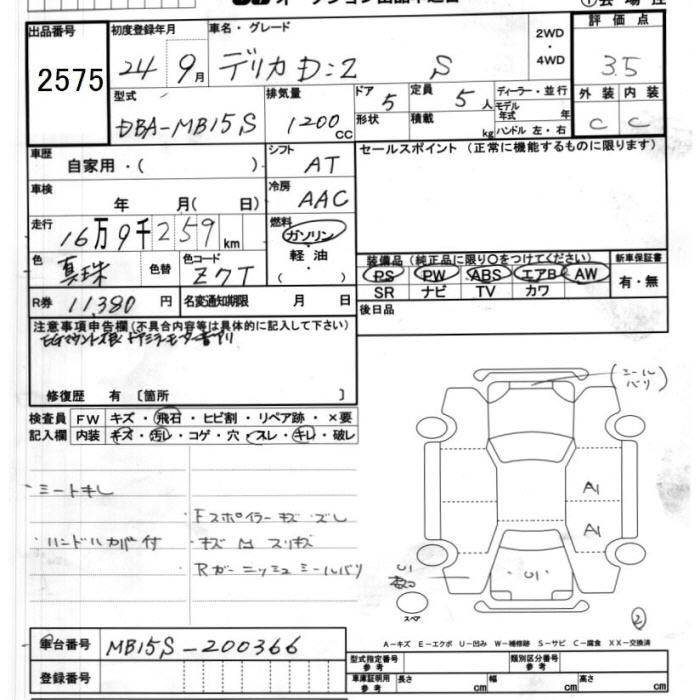 出品番号 初度登録年月 車名・グレード 評価点
2575 24年 9月 デリカD:2 S 2WD・4WD 3.5
型式 排気量 ドア 定員 ディーラー・並行 外装 内装
DBA-MB15S 1200cc 5 5人 モデル年式 年 C C
形状 積載 kg ハンドル 左・右
車歴 自家用・( ) シフト AT セールスポイント (正常に機能するものに限ります)
車検 年 月( 日) 冷房 AAC
走行 16万9千259km 燃料 ガソリン・軽油・( )
色 真珠 色替 色コード Z7T 装備品 (純正品に限り○をつけてください) 新車保証書
PS PW ABS エアB AW 有・無
SR ナビ TV カワ
R券 11,380円 名変通知期限 月 日 後日品
注意事項申告欄 (不具合内容等は具体的に記入して下さい)
EGマウント不良 ドアミラーモーター音アリ
修復歴 有 〔箇所 〕
(シールバリ)
検査員 FW キズ・飛石・ヒビ割・リペア跡・×要
記入欄 内装 キズ・汚レ・コゲ・穴・スレ・キレ・破レ
・シートキレ
・Fスポイラーキズ ズレ
A1
・ハンドルカバー付 ・キズ 凹 スリキズ
A1
Rガーニッシュ シールバリ
U1
U1
スペア
②
車台番号 MB15S-200366
A-キズ E-エクボ U-凹み W-補修跡 S-サビ C-腐食 XX-交換済
登録番号 型式指定番号 参考 類別区分番号 参考
車庫証明用 参考 長さ cm 幅 cm 高さ cm